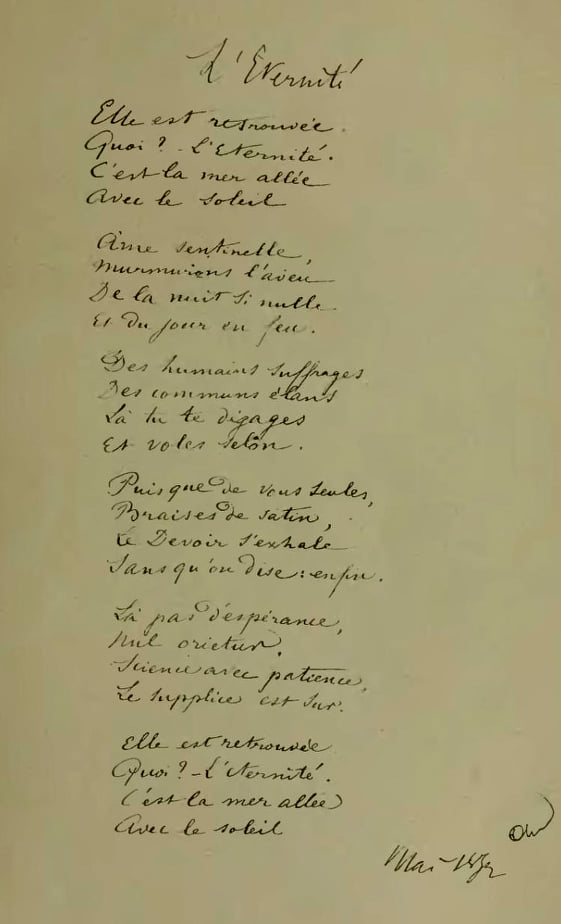 L'Eternité
Elle est retrouvée.
Quoi ? - L'Eternité.
C'est la mer allée
Avec le soleil
Ame sentinelle,
Murmurons l'aveu
De la nuit si nulle
Et du jour en feu.
Des humains suffrages
Des communs élans
Là tu te dégages
Et voles selon.
Puisque de vous seules,
Braises de satin,
Le Devoir s'exhale
Sans qu'on dise : enfin.
Là pas d'espérance,
Nul orietur.
Science avec patience,
Le supplice est sûr.
Elle est retrouvée
Quoi ? - L'Eternité.
C'est la mer allée
Avec le soleil
Mai 1872